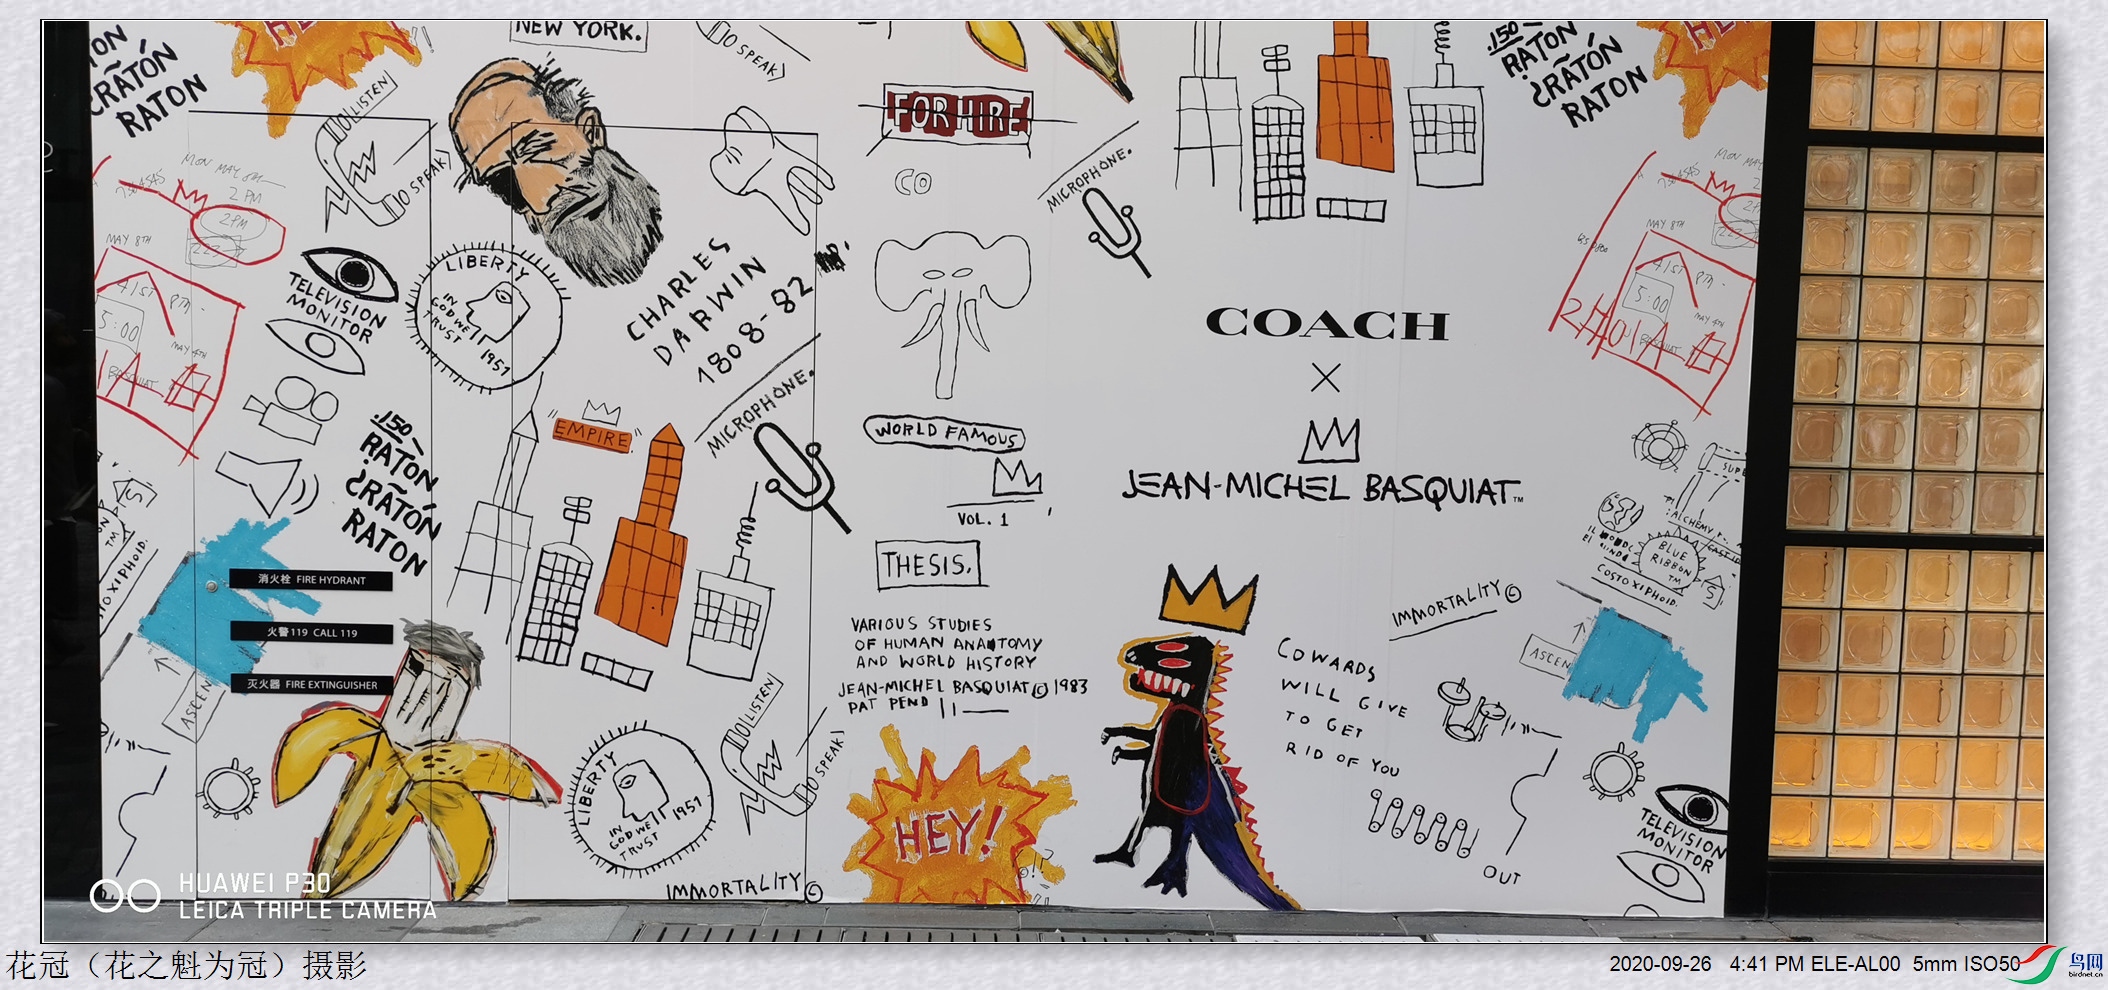 NEW YORK.
O SPEAK)
.150
RATON
¿RATÓN
RATON
.150
RATON
¿RATÓN
RATON
HEY!
LISTEN
O SPEAK)
FOR HIRE
CO
MICROPHONE.
MON MAY
2 PM
2PM
MAY 8TH
41ST PTA
5:00
MAY 4TH
BASQUIAT
TELEVISION
MONITOR
LIBERTY
IN
GOD WE
TRUST
1951
CHARLES
DARWIN
1808-82
MICROPHONE.
"EMPIRE"
WORLD FAMOUS
VOL. 1
THESIS.
COACH
×
JEAN-MICHEL BASQUIAT™
MON MAY
MAY 8TH
41ST PTA
5:00
MAY 4TH
.150
RATON
¿RATÓN
RATON
S
TM
STO XIPHOID.
消火栓 FIRE HYDRANT
火警119 CALL 119
灭火器 FIRE EXTINGUISHER
ASCEN
VARIOUS STUDIES
OF HUMAN ANATOMY
AND WORLD HISTORY
JEAN-MICHEL BASQUIAT © 1983
PAT PEND
LISTEN
O SPEAK)
LIBERTY
IN
GOD WE
TRUST
1951
IMMORTALITY ©
HEY!
COWARDS
WILL GIVE
TO GET
RID OF YOU
IMMORTALITY ©
SUPE
ALCHEMY
BLUE
RIBBON
TM
S
COSTO XIPHOID.
ASCEN
OUT
TELEVISION
MONITOR
HUAWEI P30
LEICA TRIPLE CAMERA
花冠（花之魁为冠）摄影
2020-09-26 4:41 PM ELE-AL00 5mm ISO50
鸟网
birdnet.cn